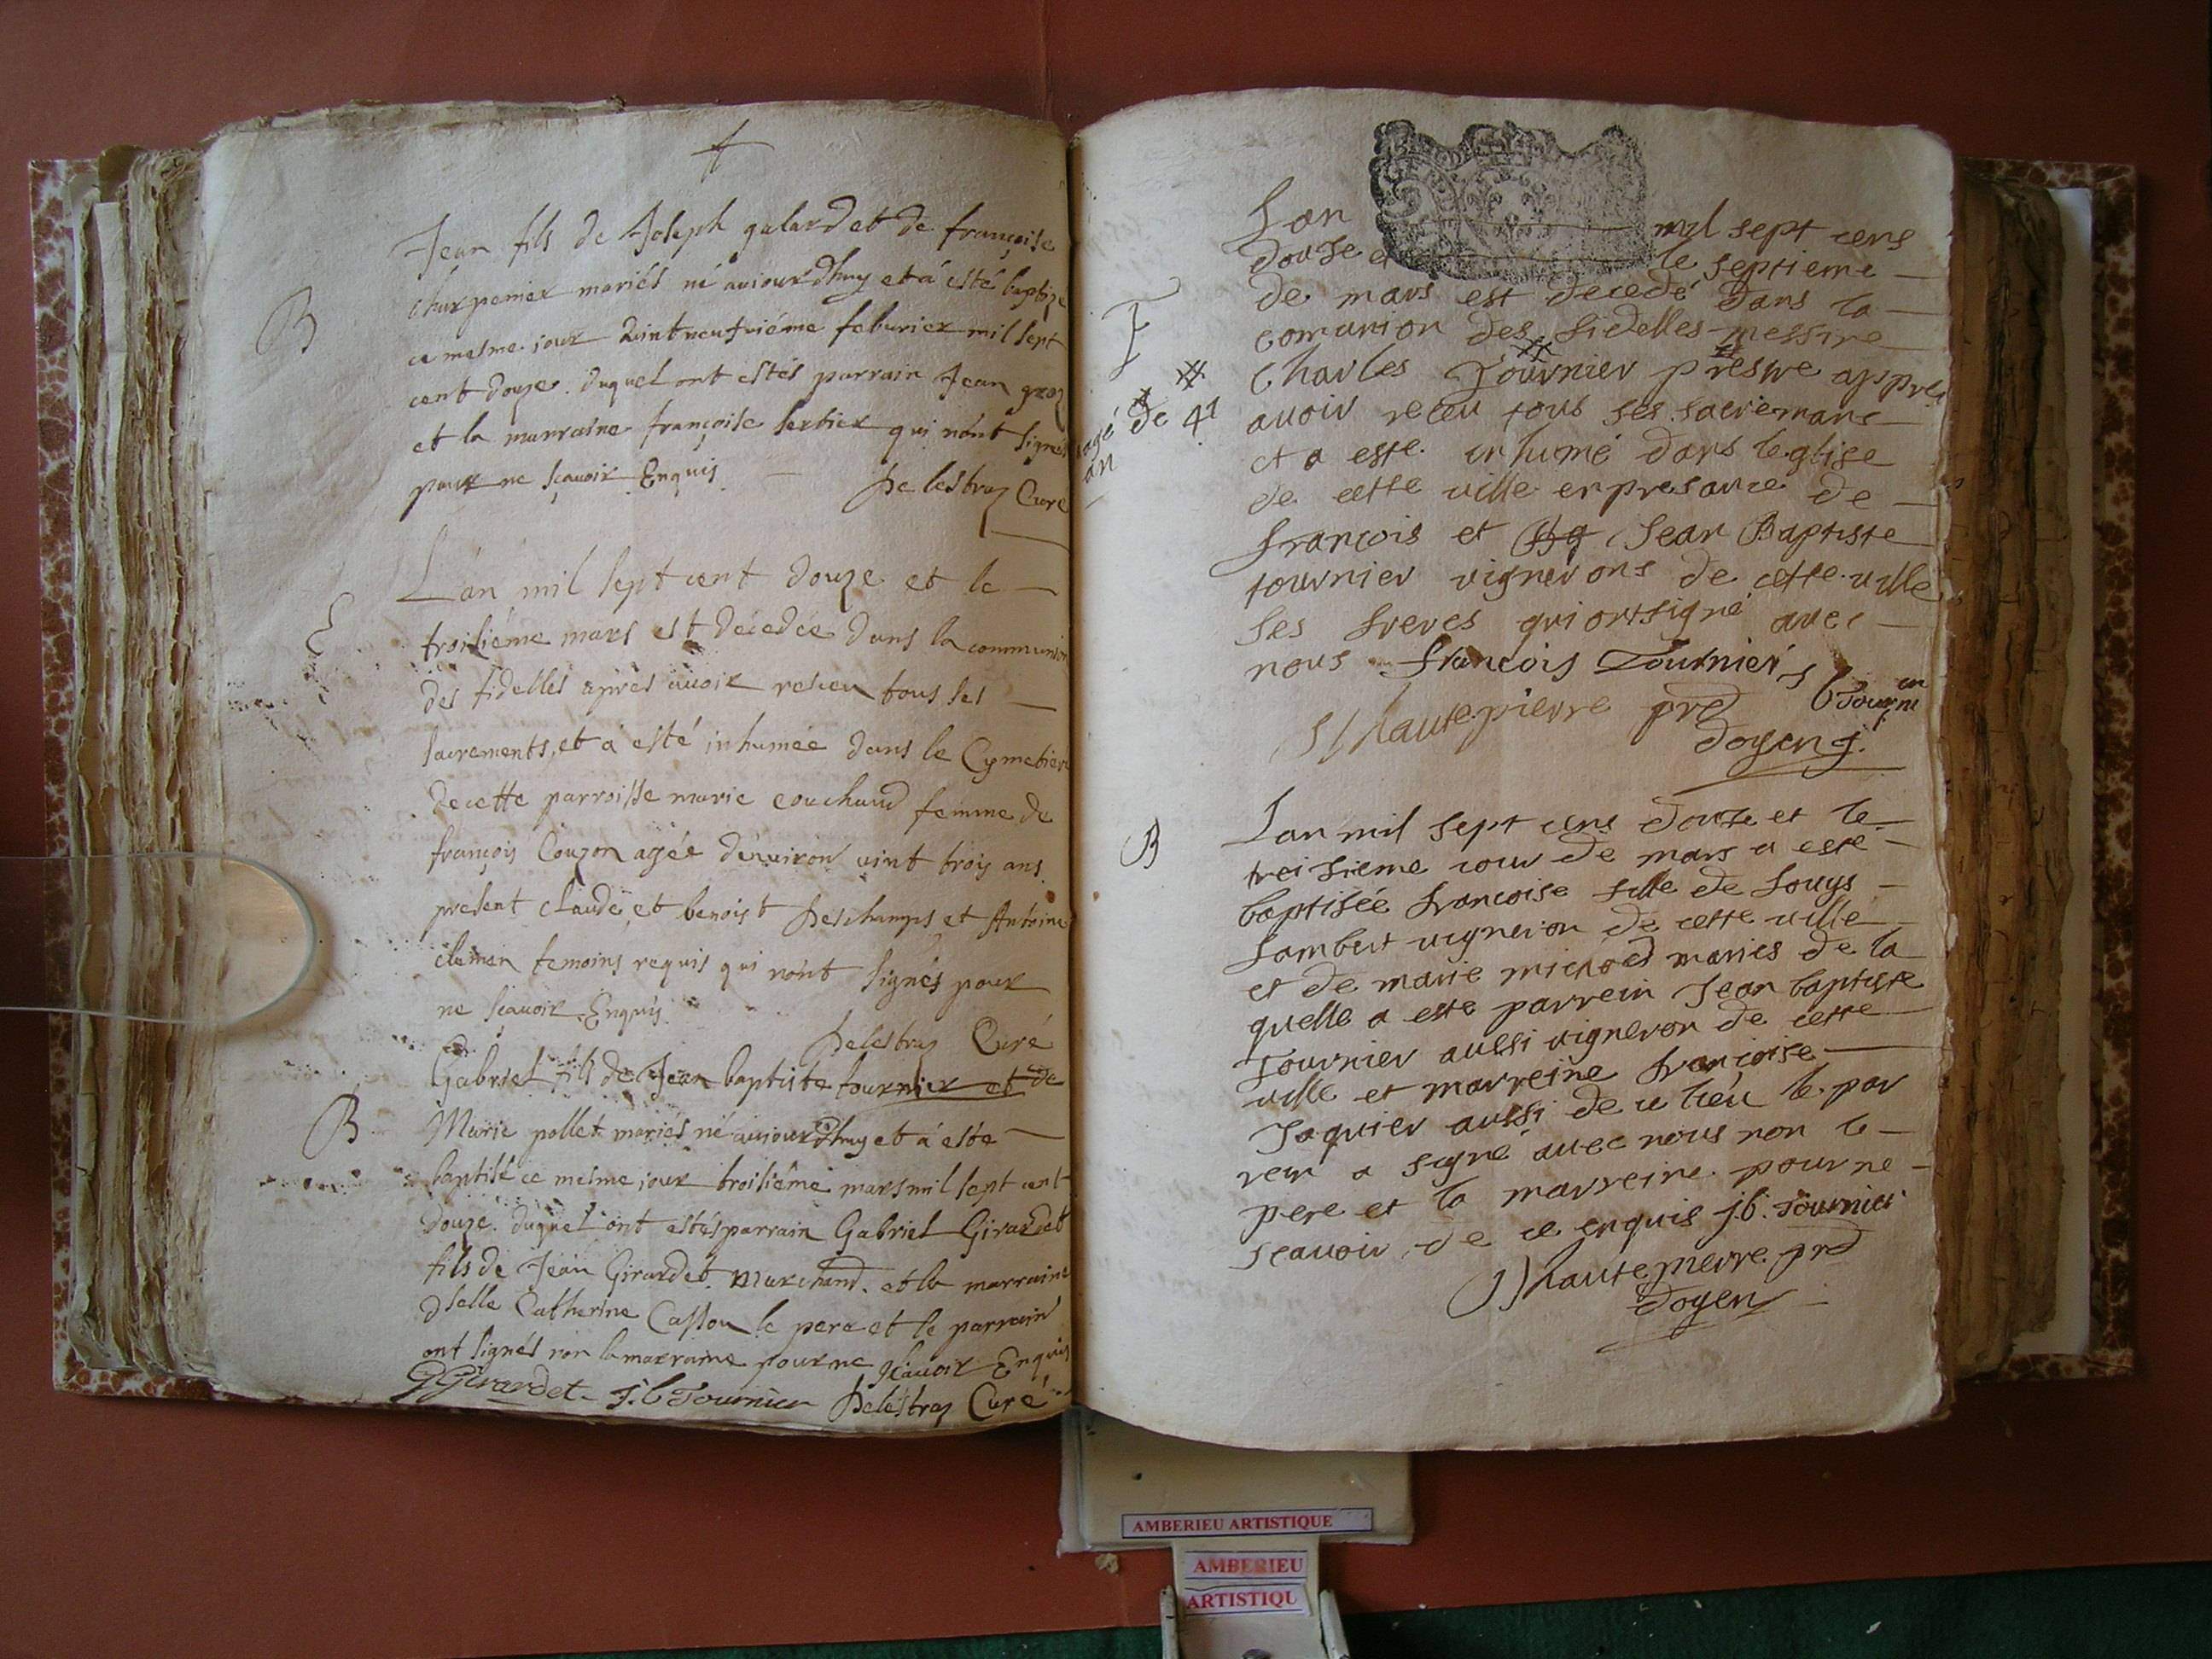 B
Jean fils de Joseph galard et de françoise
Charpenier mariés né auiourdhuy et à esté baptizé
ce mesme jour vintneufviéme feburier mil sept
cent douze. duquel ont estés parrain Jean groz
et la marraine françoise Serbier qui nônt signés
pour ne sçauoir Enquis
Delestraz Curé
L'an mil sept cent douze et le
troisiéme mars est décedée dans la communion
des fidelles apres auoir reseu tous ses
sacrements, et a esté inhumée dans le Cymetiere
de cette parroisse marie couchaud femme de
françois Couzon agée d'enuiron vint trois ans.
present claude et benoist Deschamps et Antoine
clemen temoins requis qui nônt signés pour
ne sçauoir Enquis
Delestraz Curé
B
Gabriel fils de Jean baptiste tournier et de
Marie pollet mariés né auiourdhuy et à esté
baptisé ce mesme jour troisiéme mars mil sept cent
douze. duquel ont estés parrain Gabriel Girardet
fils de Jean Girardet Marchand. et la marraine
dselle Catherine Casson le pere et le parrain
ont signés non la marraine pour ne sçauoir Enquis
GGirardet J.b Tournier Delestraz Curé
Lan mil sept cens
douze et le septieme
de mars est decedé dans la
comunion des fidelles messire
Charles Tournier prestre appres
agé de 41
an
avoir receu tous ses sacremans
et a esté inhumé dans leglise
de cette ville en presance de
francois et Jean Baptiste
tournier vignerons de cette ville
ses freres qui ont signé avec
nous francois Tournier
J b Tournier
J hautepierre prd
doyen j.
B
Lan mil sept cens douze et le
treisieme iour de mars a esté
baptisée francoise fille de Louys
Lambert vigneron de cette ville
et de marie michoed mariés de la
quelle a esté parrein Jean baptiste
Tournier aussi vigneron de cette
ville et marreine françoise
Jaquier aussi de ce lieu le par
rein a signé avec nous non le
pere et la marreine pour ne
scavoir de ce enquis j.b. Tournier
J hautepierre prd
doyen
AMBERIEU ARTISTIQUE
AMBERIEU
ARTISTIQU